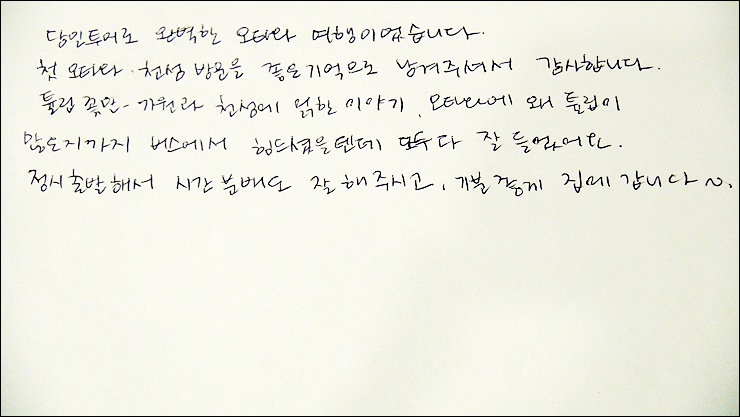 당일투어로 완벽한 오타와 여행이었습니다.
첫 오타와·천섬 방문을 좋은기억으로 남겨주셔서 감사합니다.
튤립 꽃만- 가원과 천섬에 얽힌 이야기, 오타와에 왜 튤립이
많은지까지 버스에서 힘드셨을텐데 모두 다 잘 들었어요.
정시출발해서 시간분배도 잘 해주시고, 기분좋게 집에 갑니다~.